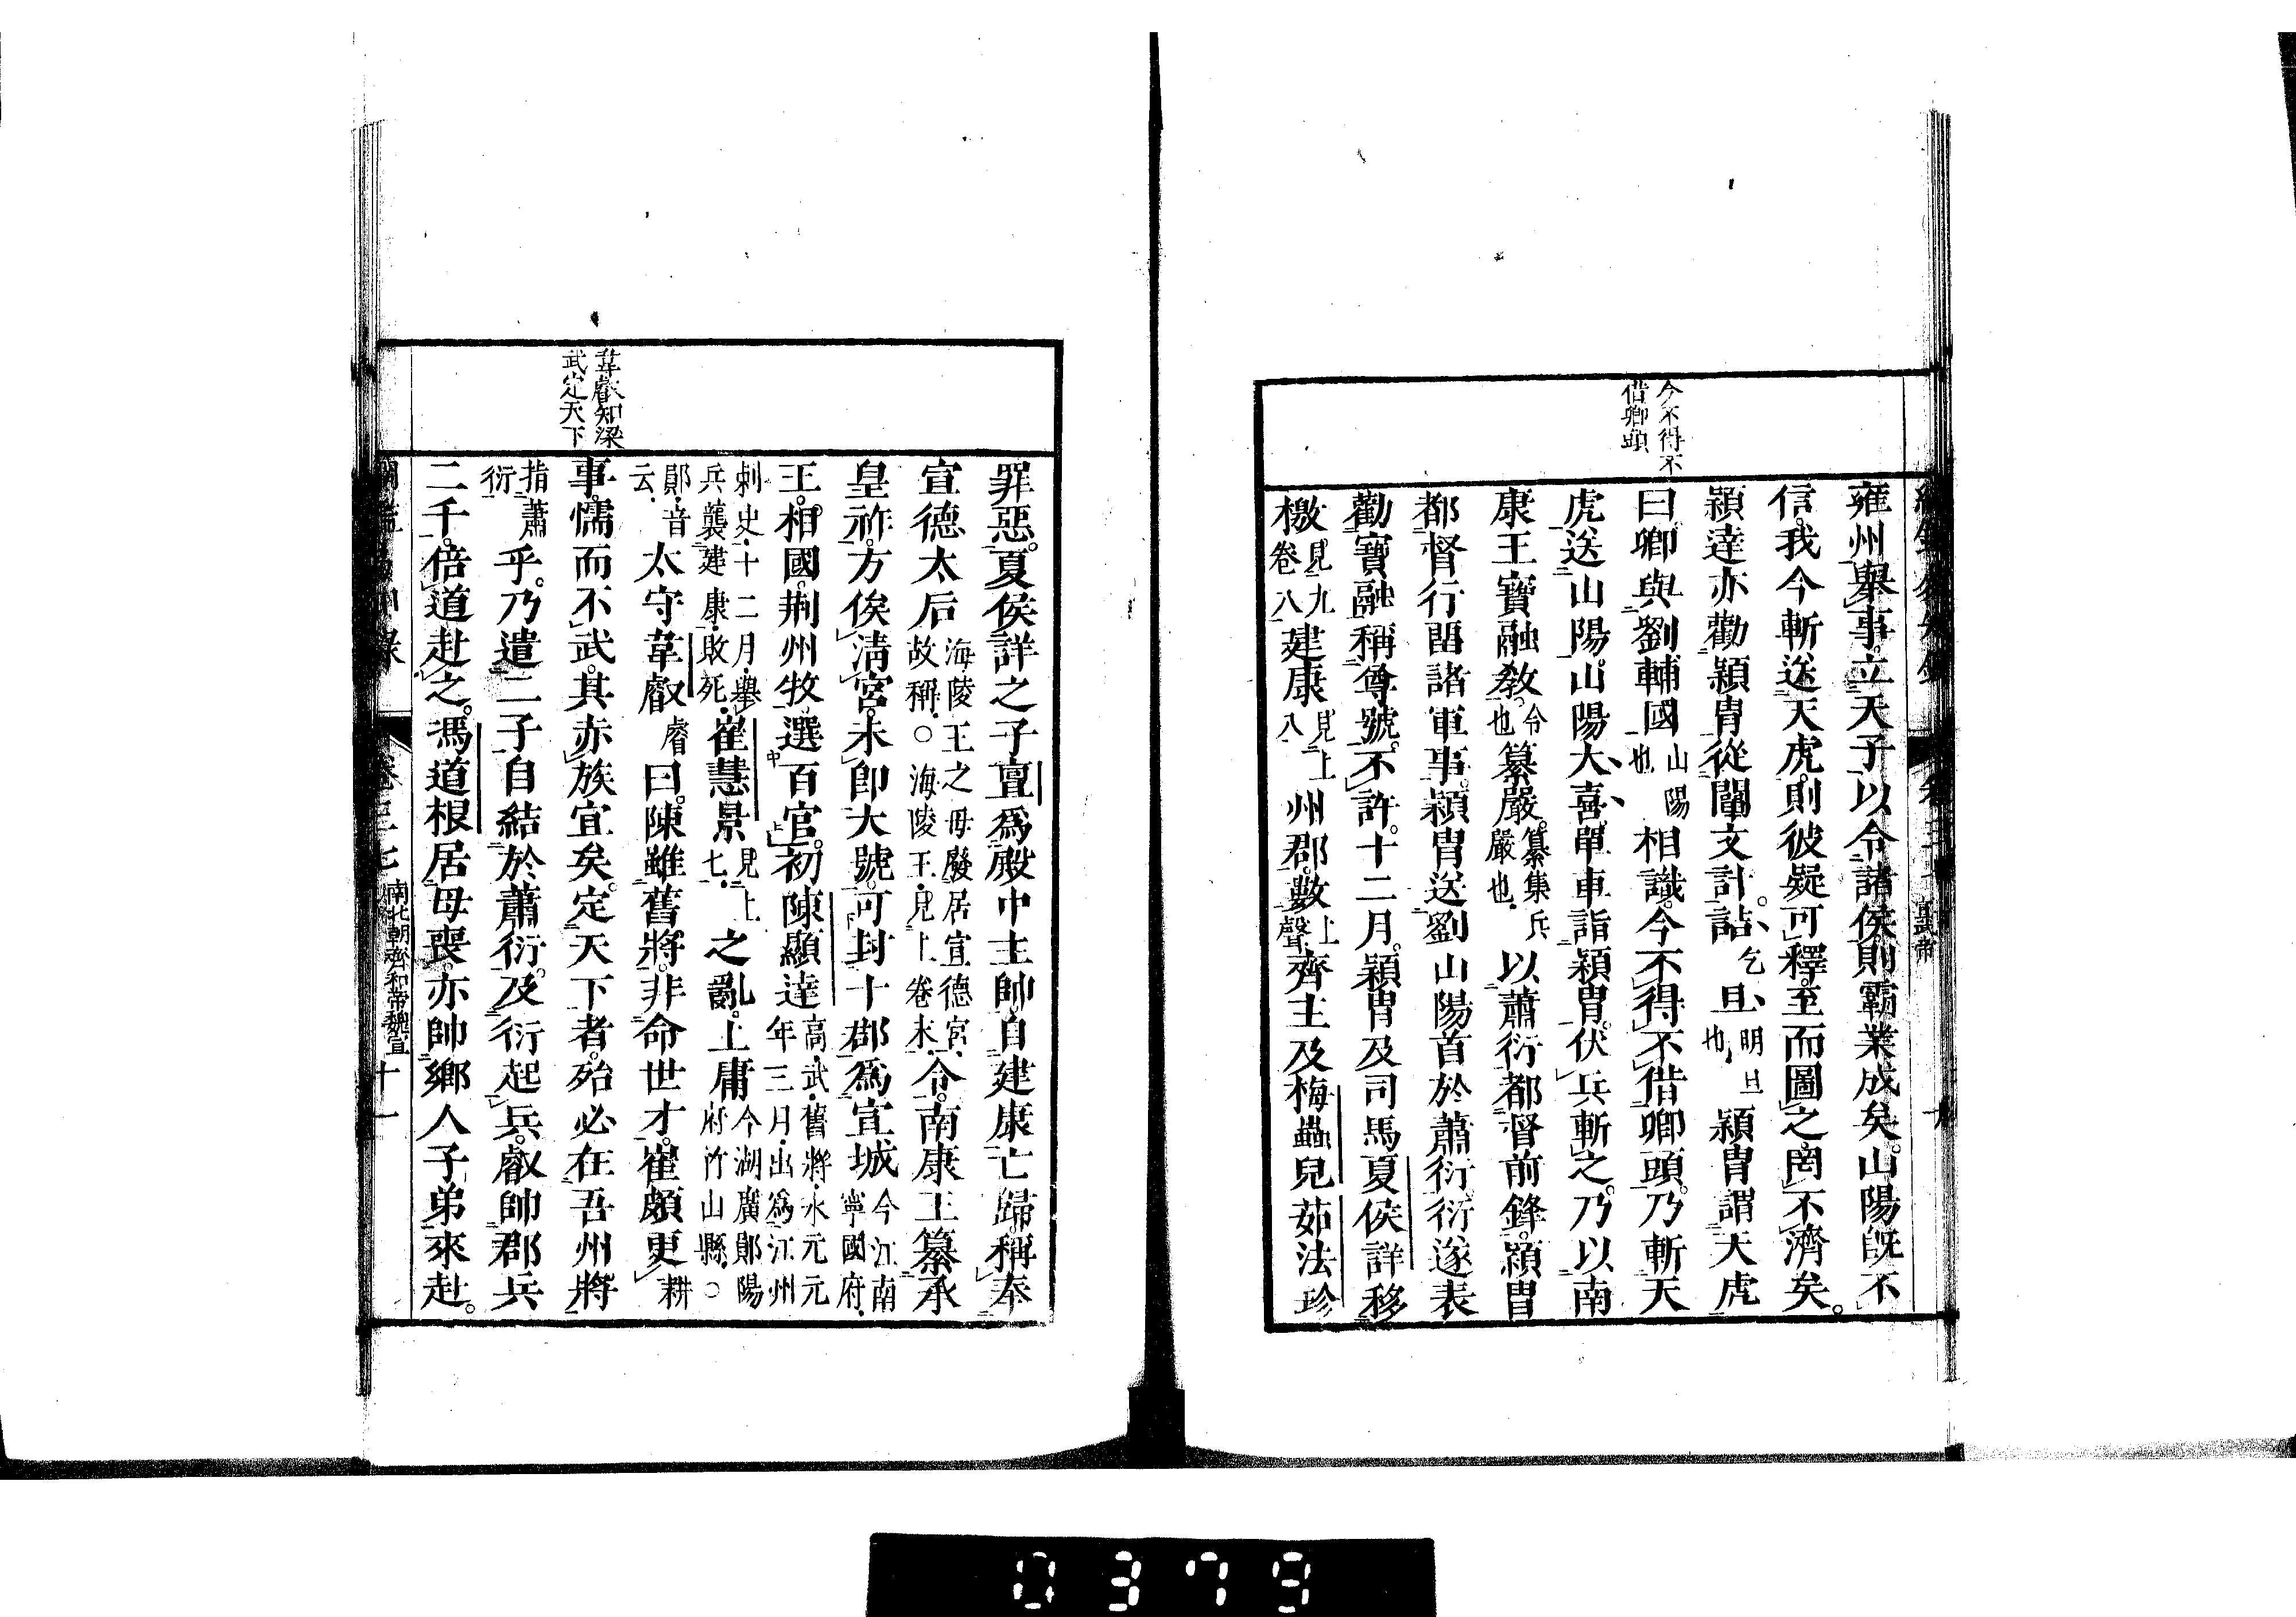 今不得不
借卿頭
雍州擧事立天子以令諸侯則霸業成矣山陽旣不
信我今斬送天虎則彼疑可釋至而圖之罔不濟矣
穎達亦勸穎冑從闡文計詰乞旦明旦也穎冑謂天虎
曰卿與劉輔國山陽也相識今不得不借卿頭乃斬天
虎送山陽山陽大喜單車詣穎冑伏兵斬之乃以南
康王寶融敎令也纂嚴纂集兵嚴也以蕭衍都督前鋒穎冑
都督行留諸軍事穎冑送劉山陽首於蕭衍衍遂表
勸寶融稱尊號不許十二月穎冑及司馬夏侯詳移
檄見九卷八建康見上八州郡數上聲齊主及梅蟲兒茹法珍
韋叡知梁
武定天下
罪惡夏侯詳之子亶爲殿中主帥自建康亡歸稱奉
宣德太后海陵王之母廢居宣德宮故稱○海陵王見上卷末令南康王纂承
皇祚方俟淸宮未卽大號可封十郡爲宣城今江南寧國府
王相國荆州牧選百官初陳顯達高武舊將永元元年三月出爲江州
刺史十二月擧兵襲建康敗死崔慧景見上七之亂上庸今湖廣鄖陽府竹山縣○
鄖音云太守韋叡睿曰陳雖舊將非命世才崔頗更耕
事懦而不武其赤族宜矣定天下者殆必在吾州將
指蕭衍乎乃遣二子自結於蕭衍及衍起兵叡帥郡兵
二千倍道赴之馮道根居母喪亦帥鄕人子弟來赴
卷三七 南北朝齊和帝魏宣 十一